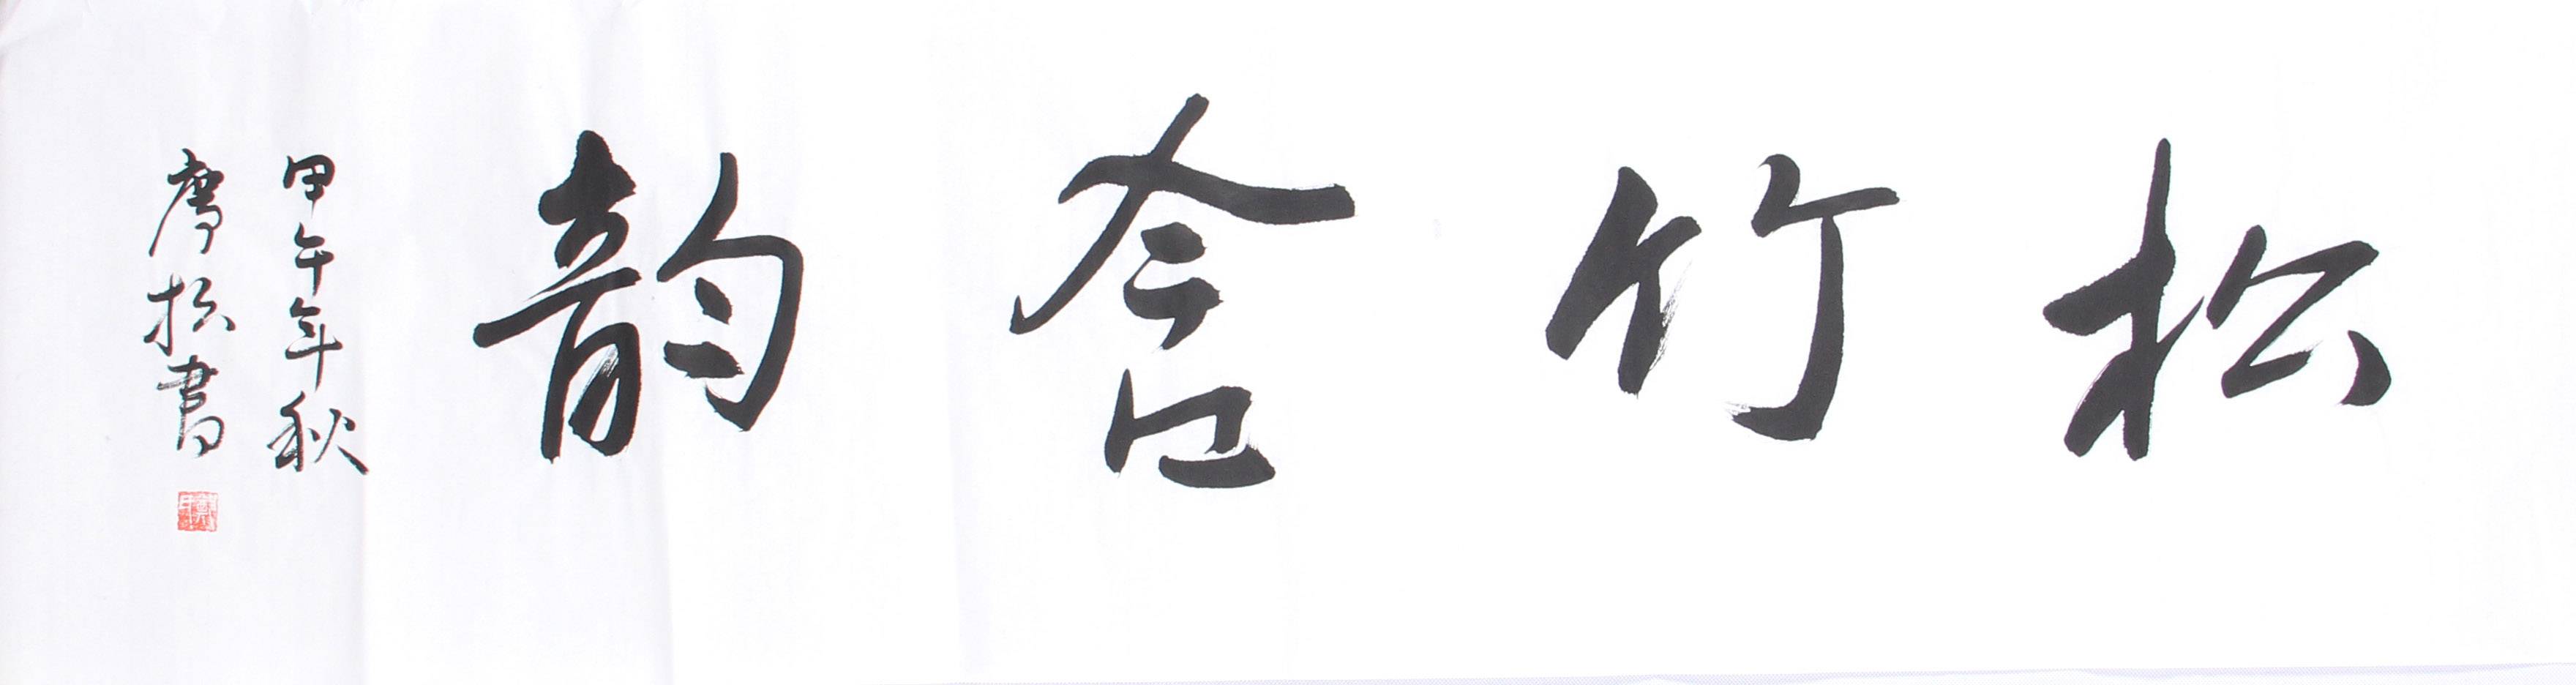 松竹含韵
甲午年秋
松書